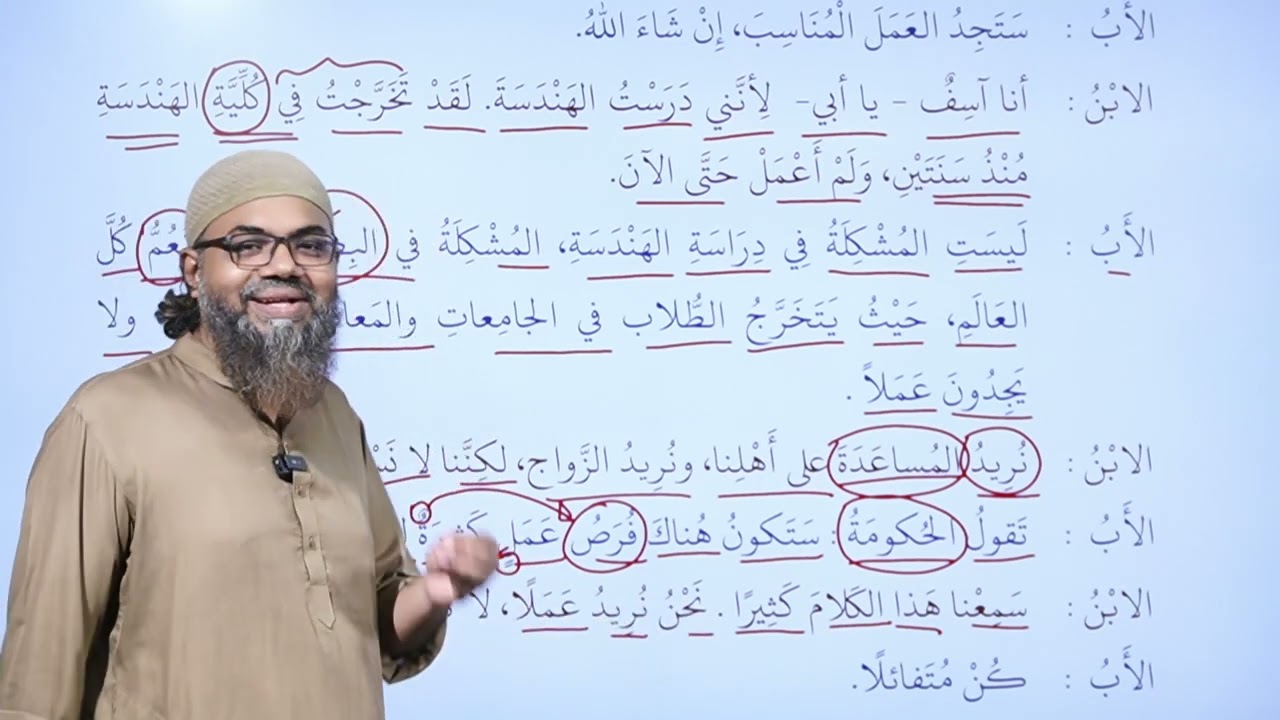 الأَبُ : سَتَجِدُ العَمَلَ الْمُنَاسِبَ، إِنْ شَاءَ اللهُ.
الابْنُ : أنا آسِفٌ - يا أبي- لِأَنَّني دَرَسْتُ الهَنْدَسَةَ. لَقَدْ تَخَرَّجْتُ فِي كُلِّيَّةِ الهَنْدَسَةِ
مُنْذُ سَنَتَيْنِ، وَلَمْ أَعْمَلْ حَتَّى الآنَ.
الأَبُ : لَيسَتِ المُشْكِلَةُ فِي دِرَاسَةِ الهَنْدَسَةِ، المُشْكِلَةُ في كُلَّ
العَالَمِ، حَيْثُ يَتَخَرَّجُ الطُّلاب في الجامِعاتِ ولا
يَجِدُونَ عَمَلاً .
الابْنُ : نُرِيدُ المُساعَدَةَ على أَهْلِنا، ونُرِيدُ الزَّواج، لَكِنَّنا لا
الأَبُ : تَقولُ الحُكومَةُ : سَتَكونُ هُناكَ فُرَصُ عَمَلٍ كَثِيرَةٌ
الابْنُ : سَمِعْنا هَذا الكَلامَ كَثِيرًا . نَحْنُ نُرِيدُ عَمَلًا، لا
الأَبُ : كُنْ مُتَفائلًا.